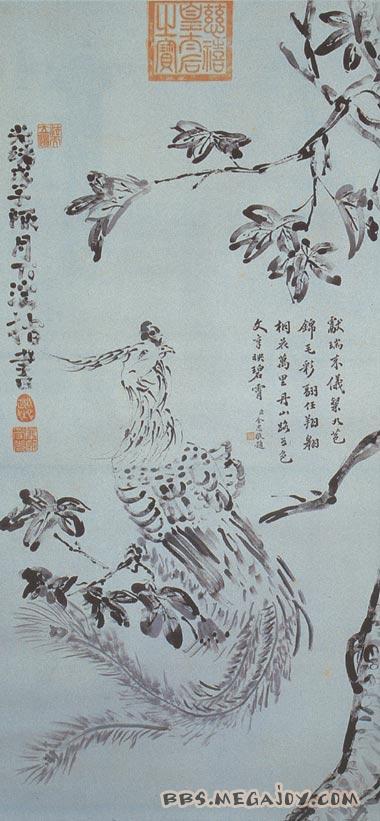 慈禧
皇太后
之寶
獻瑞來儀粲九苞
錦毛彩翮任翔翱
桐花萬里丹山路五色
文章映碧霄
敬題
光緒戊子陬月下澣指
BBS.MEGAJOY.COM